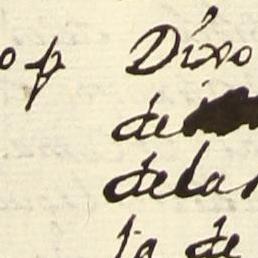 op Dixo
de
dela
la de